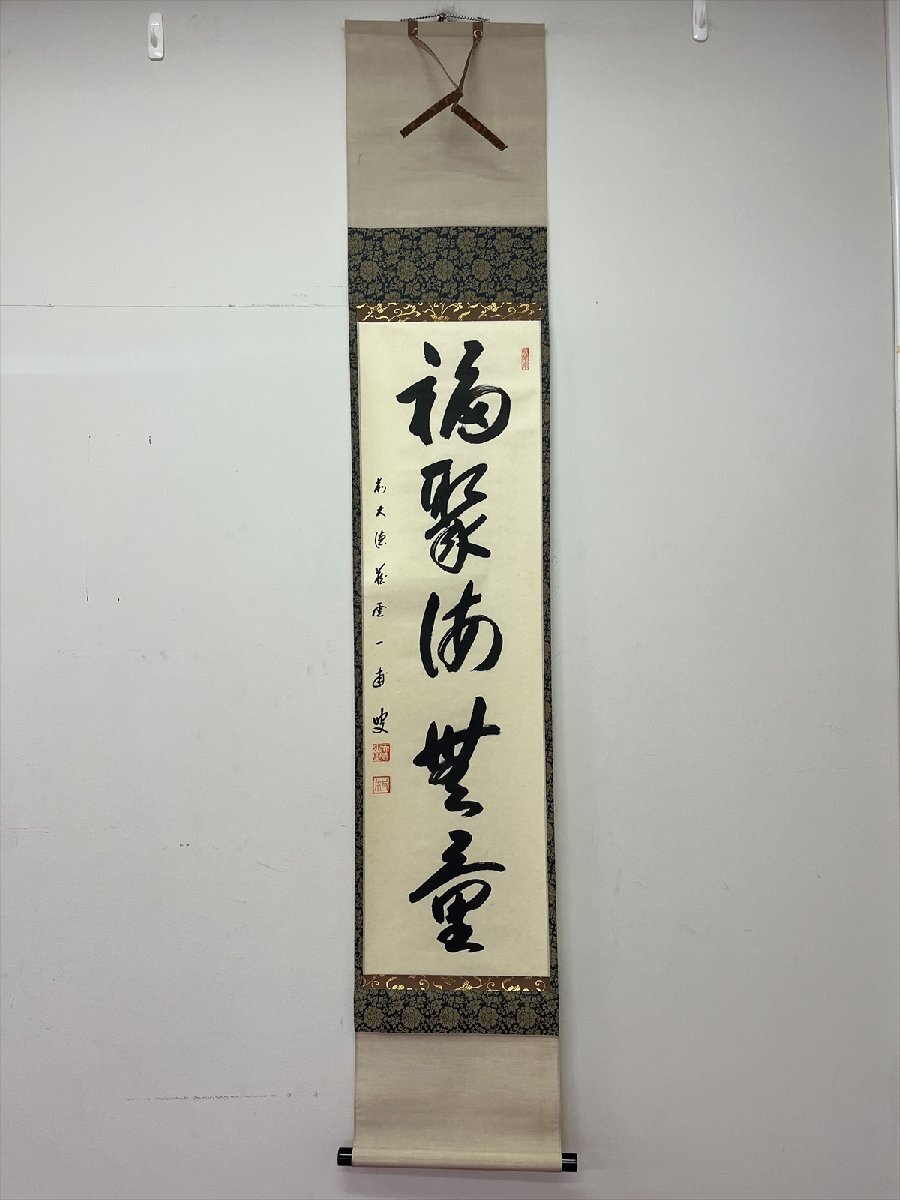 福聚海無量
前大徳藤雲一甫叟